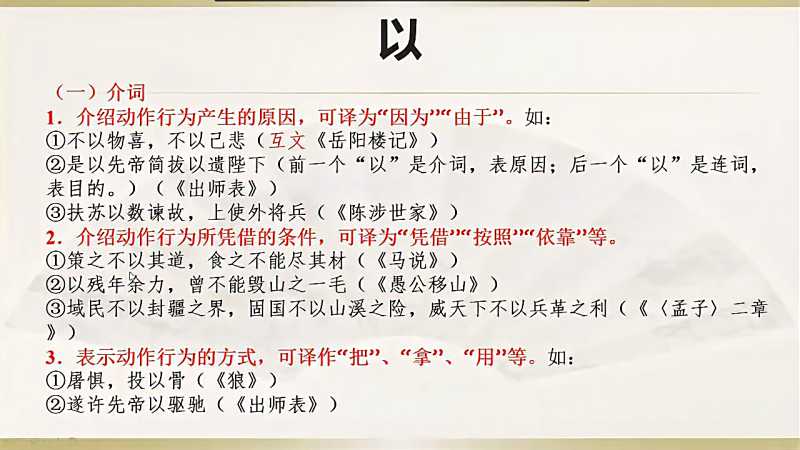 以
（一）介词
1．介绍动作行为产生的原因，可译为“因为”“由于”。如：
①不以物喜，不以己悲（互文《岳阳楼记》）
②是以先帝简拔以遗陛下（前一个“以”是介词，表原因；后一个“以”是连词，
表目的。）（《出师表》）
③扶苏以数谏故，上使外将兵（《陈涉世家》）
2．介绍动作行为所凭借的条件，可译为“凭借”“按照”“依靠”等。
①策之不以其道，食之不能尽其材（《马说》）
②以残年余力，曾不能毁山之一毛（《愚公移山》）
③域民不以封疆之界，固国不以山溪之险，威天下不以兵革之利（《〈孟子〉二章
》）
3．表示动作行为的方式，可译作“把”、“拿”、“用”等。如：
①屠惧，投以骨（《狼》）
②遂许先帝以驱驰（《出师表》）